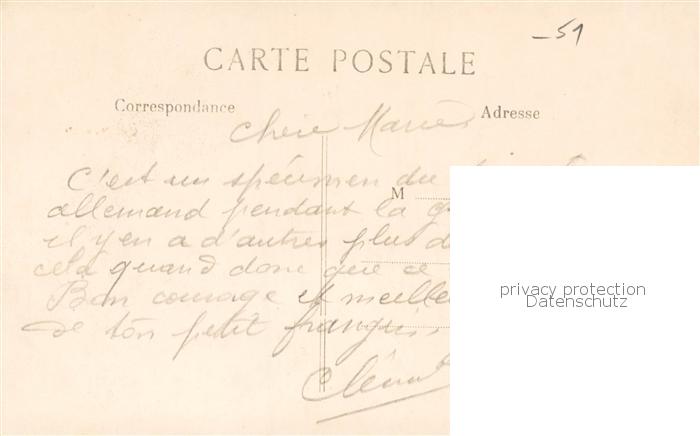 – 51
CARTE POSTALE
Correspondance
Adresse
Chère Marie
C'est un spécimen du
M
allemand pendant la
il y en a d'autres plus
cela quand donc que ce
Bon courage et
de ton petit français
privacy protection
Datenschutz